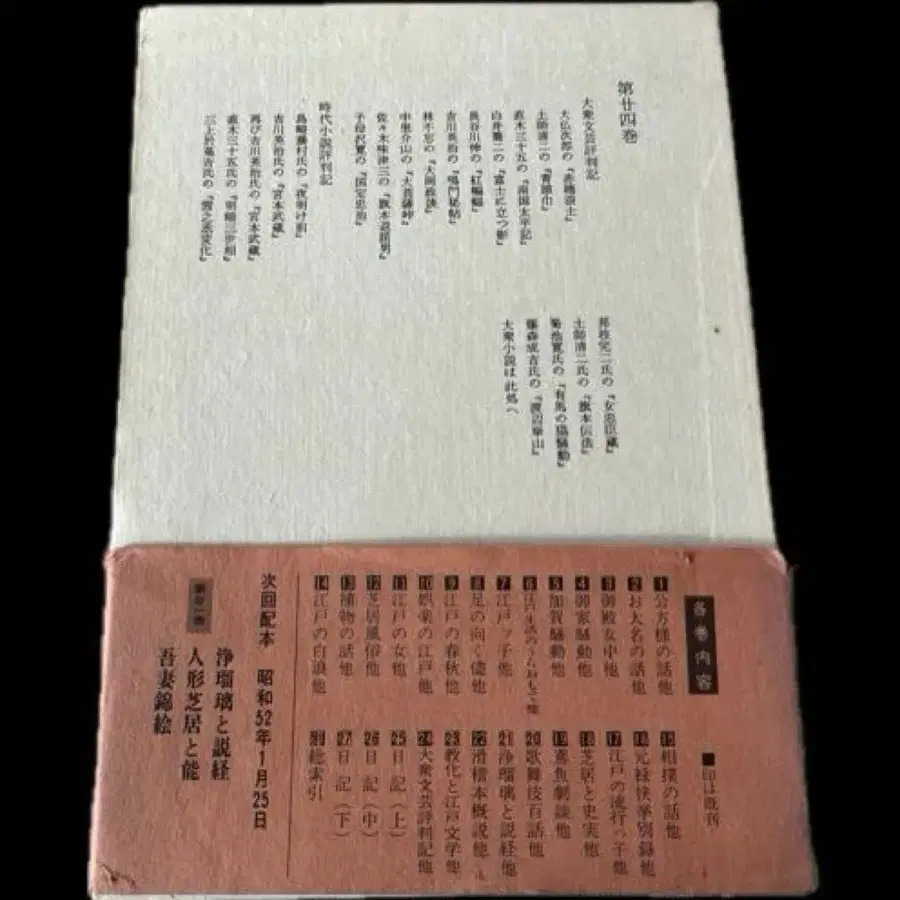 第廿四巻
大衆文芸評判記
大仏次郎の『赤穂浪士』
土師清二の『青頭巾』
直木三十五の『南国太平記』
白井喬二の『富士に立つ影』
長谷川伸の『紅蝙蝠』
吉川英治の『鳴門秘帖』
林不忘の『大岡政談』
中里介山の『大菩薩峠』
佐々木味津三の『旗本退屈男』
子母沢寛の『国定忠治』
時代小説評判記
島崎藤村氏の『夜明け前』
吉川英治氏の『宮本武蔵』
再び吉川英治氏の『宮本武蔵』
直木三十五氏の『明暗三世相』
三上於菟吉氏の『雪之丞変化』
邦枝完二氏の『女忠臣蔵』
土師清二氏の『旗本伝法』
菊池寛氏の『有馬の猫騒動』
藤森成吉氏の『渡辺崋山』
大衆小説は此処へ
各巻内容
■印は既刊
1 公方様の話他
2 お大名の話他
3 御殿女中他
4 御家騒動他
5 加賀騒動他
6 江戸生活のうらおもて他
7 江戸ッ子他
8 足の向く儘他
9 江戸の春秋他
10 娯楽の江戸他
11 江戸の女他
12 芝居風俗他
13 捕物の話他
14 江戸の白浪他
15 相撲の話他
16 元禄快挙別録他
17 江戸の流行っ子他
18 芝居と史実他
19 鳶魚劇談他
20 歌舞伎百話他
21 浄瑠璃と説経他
22 滑稽本概説他
23 教化と江戸文学他
24 大衆文芸評判記他
25 日記（上）
26 日記（中）
27 日記（下）
別 総索引
次回配本 昭和52年1月25日
第廿一巻
浄瑠璃と説経
人形芝居と能
吾妻錦絵